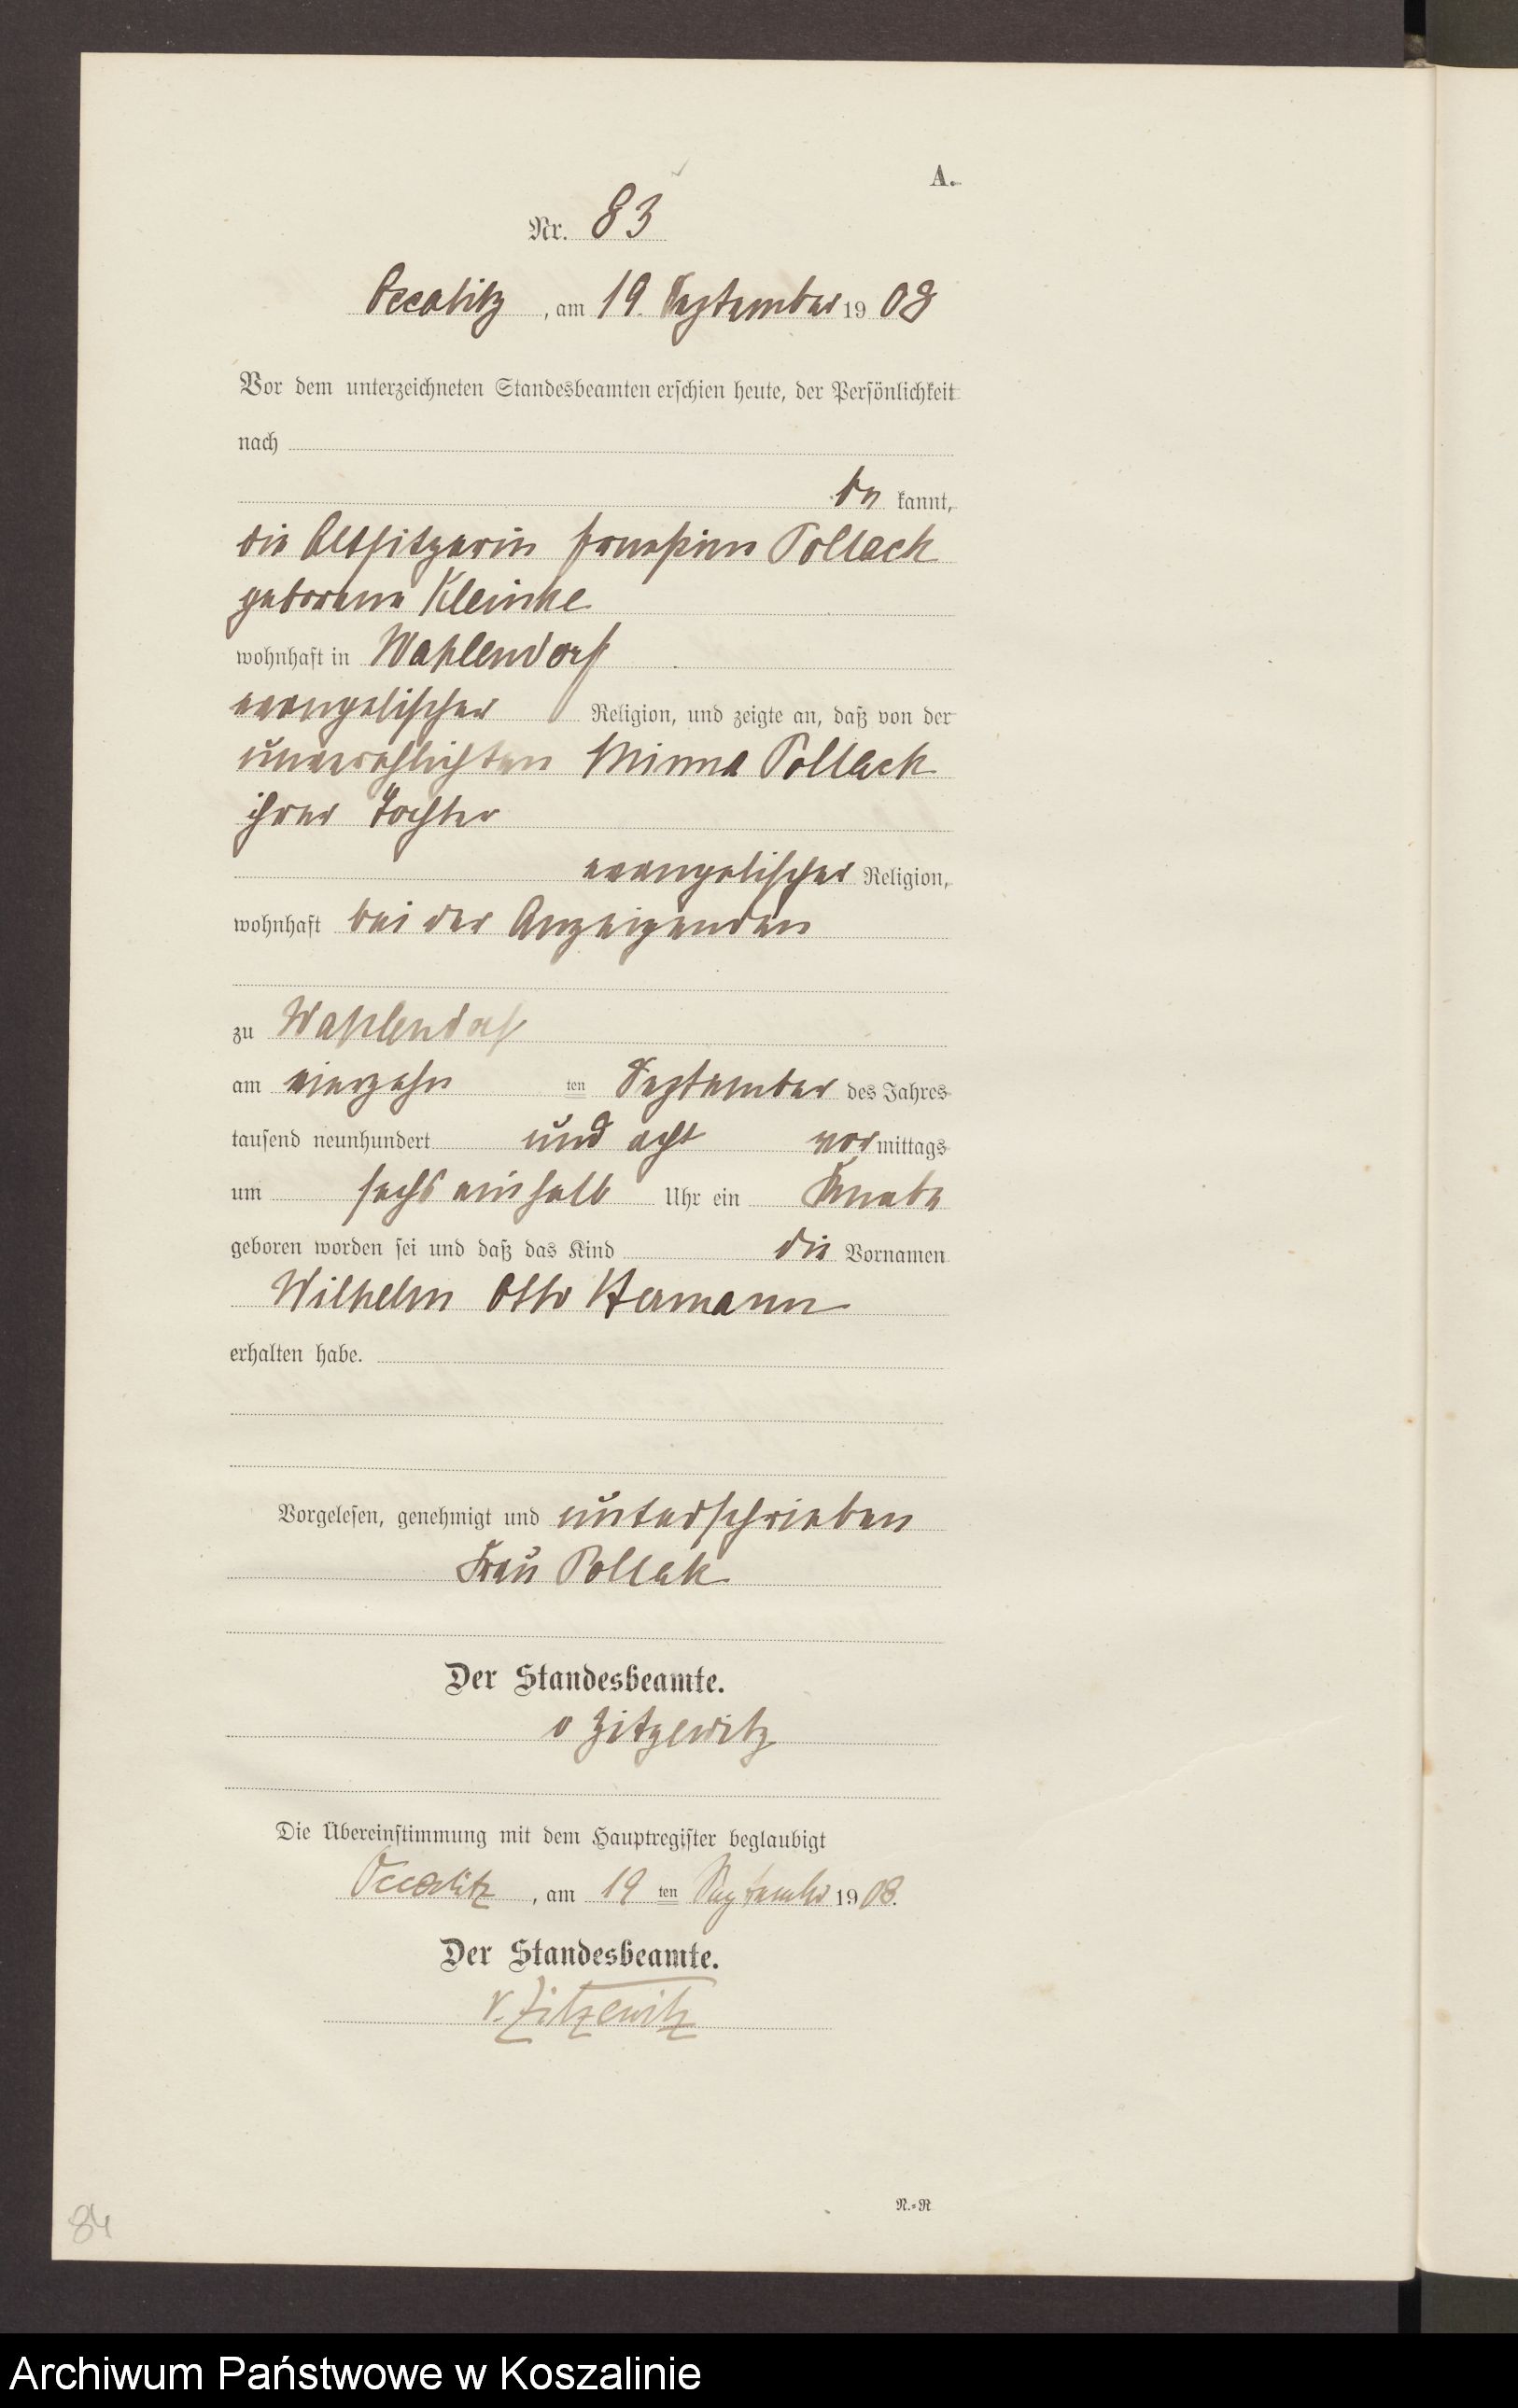 A.
Nr. 83
Occalitz, am 19. September 1908
Vor dem unterzeichneten Standesbeamten erschien heute, der Persönlichkeit
nach
be kannt,
die Altsitzerin Pollack
geborene Kleinke
wohnhaft in Wahlendorf
evangelischer Religion, und zeigte an, daß von der
unverehlichten Minna Pollack
ihrer Tochter
evangelischer Religion,
wohnhaft bei der Anzeigenden
zu Wahlendorf
am vierzehn ten September des Jahres
tausend neunhundert und acht vormittags
um sechs einhalb Uhr ein Knabe
geboren worden sei und daß das Kind die Vornamen
Wilhelm Otto Hermann
erhalten habe.
Vorgelesen, genehmigt und unterschrieben
Frau Pollak
Der Standesbeamte.
v Zitzewitz
Die Übereinstimmung mit dem Hauptregister beglaubigt
Occalitz, am 19 ten September 1908.
Der Standesbeamte.
v. Zitzewitz
N.=R
84
Archiwum Państwowe w Koszalinie